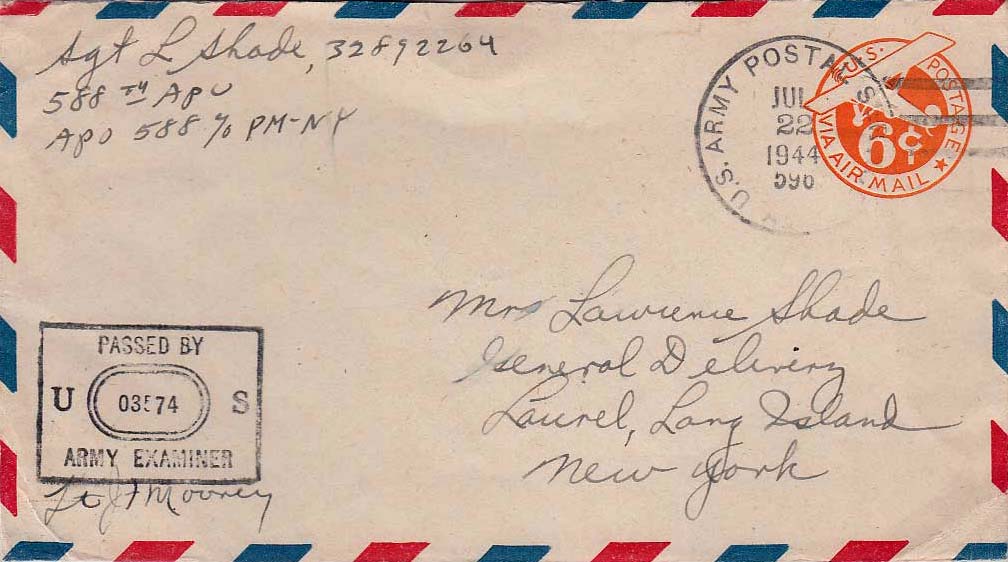 Sgt L Shade, 32892264
588 TH APU
APO 588 % PM-NY
U.S. ARMY POSTAL
JUL
22
1944
596
U.S. POSTAGE
6¢
VIA AIR MAIL
Mrs Lawrence Shade
General Delivery
Laurel, Long Island
New York
PASSED BY
U 03574 S
ARMY EXAMINER
Lt J Mooney